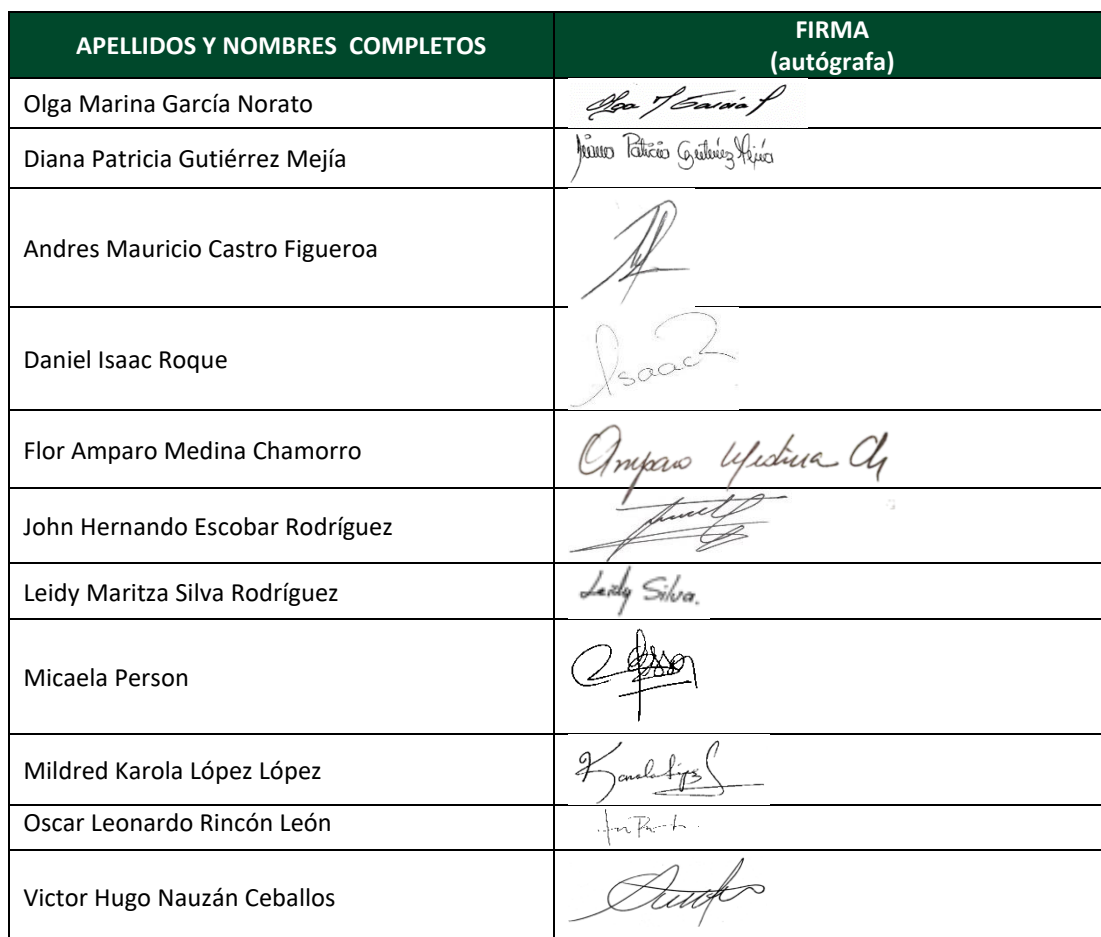 APELLIDOS Y NOMBRES COMPLETOS
FIRMA
(autógrafa)
Olga Marina García Norato
Olga M García
Diana Patricia Gutiérrez Mejía
Diana Patricia Gutiérrez Mejía
Andres Mauricio Castro Figueroa
Daniel Isaac Roque
Isaac
Flor Amparo Medina Chamorro
Amparo Medina Ch
John Hernando Escobar Rodríguez
Leidy Maritza Silva Rodríguez
Leidy Silva.
Micaela Person
Mildred Karola López López
Karola López
Oscar Leonardo Rincón León
Victor Hugo Nauzán Ceballos